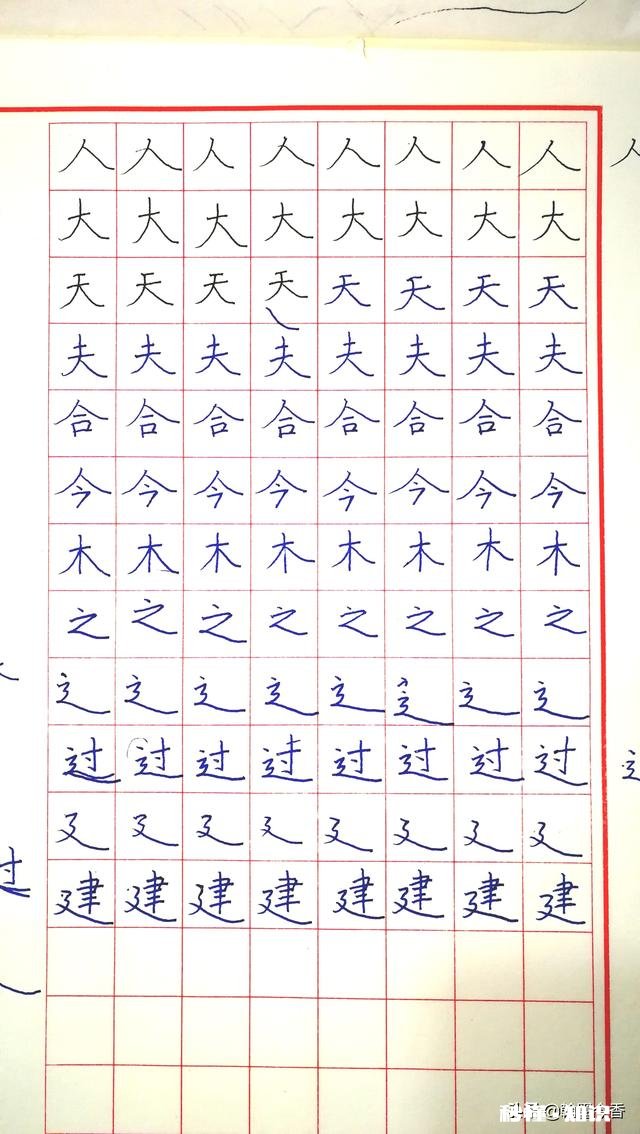 人人人人人人人人
大大大大大大大大
天天天天天天天天
夫夫夫夫夫夫夫夫
合合合合合合合合
今今今今今今今今
木木木木木木木木
之之之之之之之之
辶辶辶辶辶辶辶辶
过过过过过过过过
廴廴廴廴廴廴廴廴
建建建建建建建建